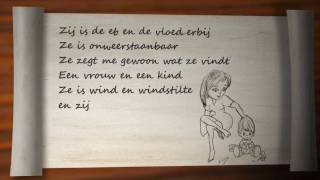 Zij is de eb en de vloed erbij
Ze is onweerstaanbaar
Ze zegt me gewoon wat ze vindt
Een vrouw en een kind
Ze is wind en windstilte
en zij